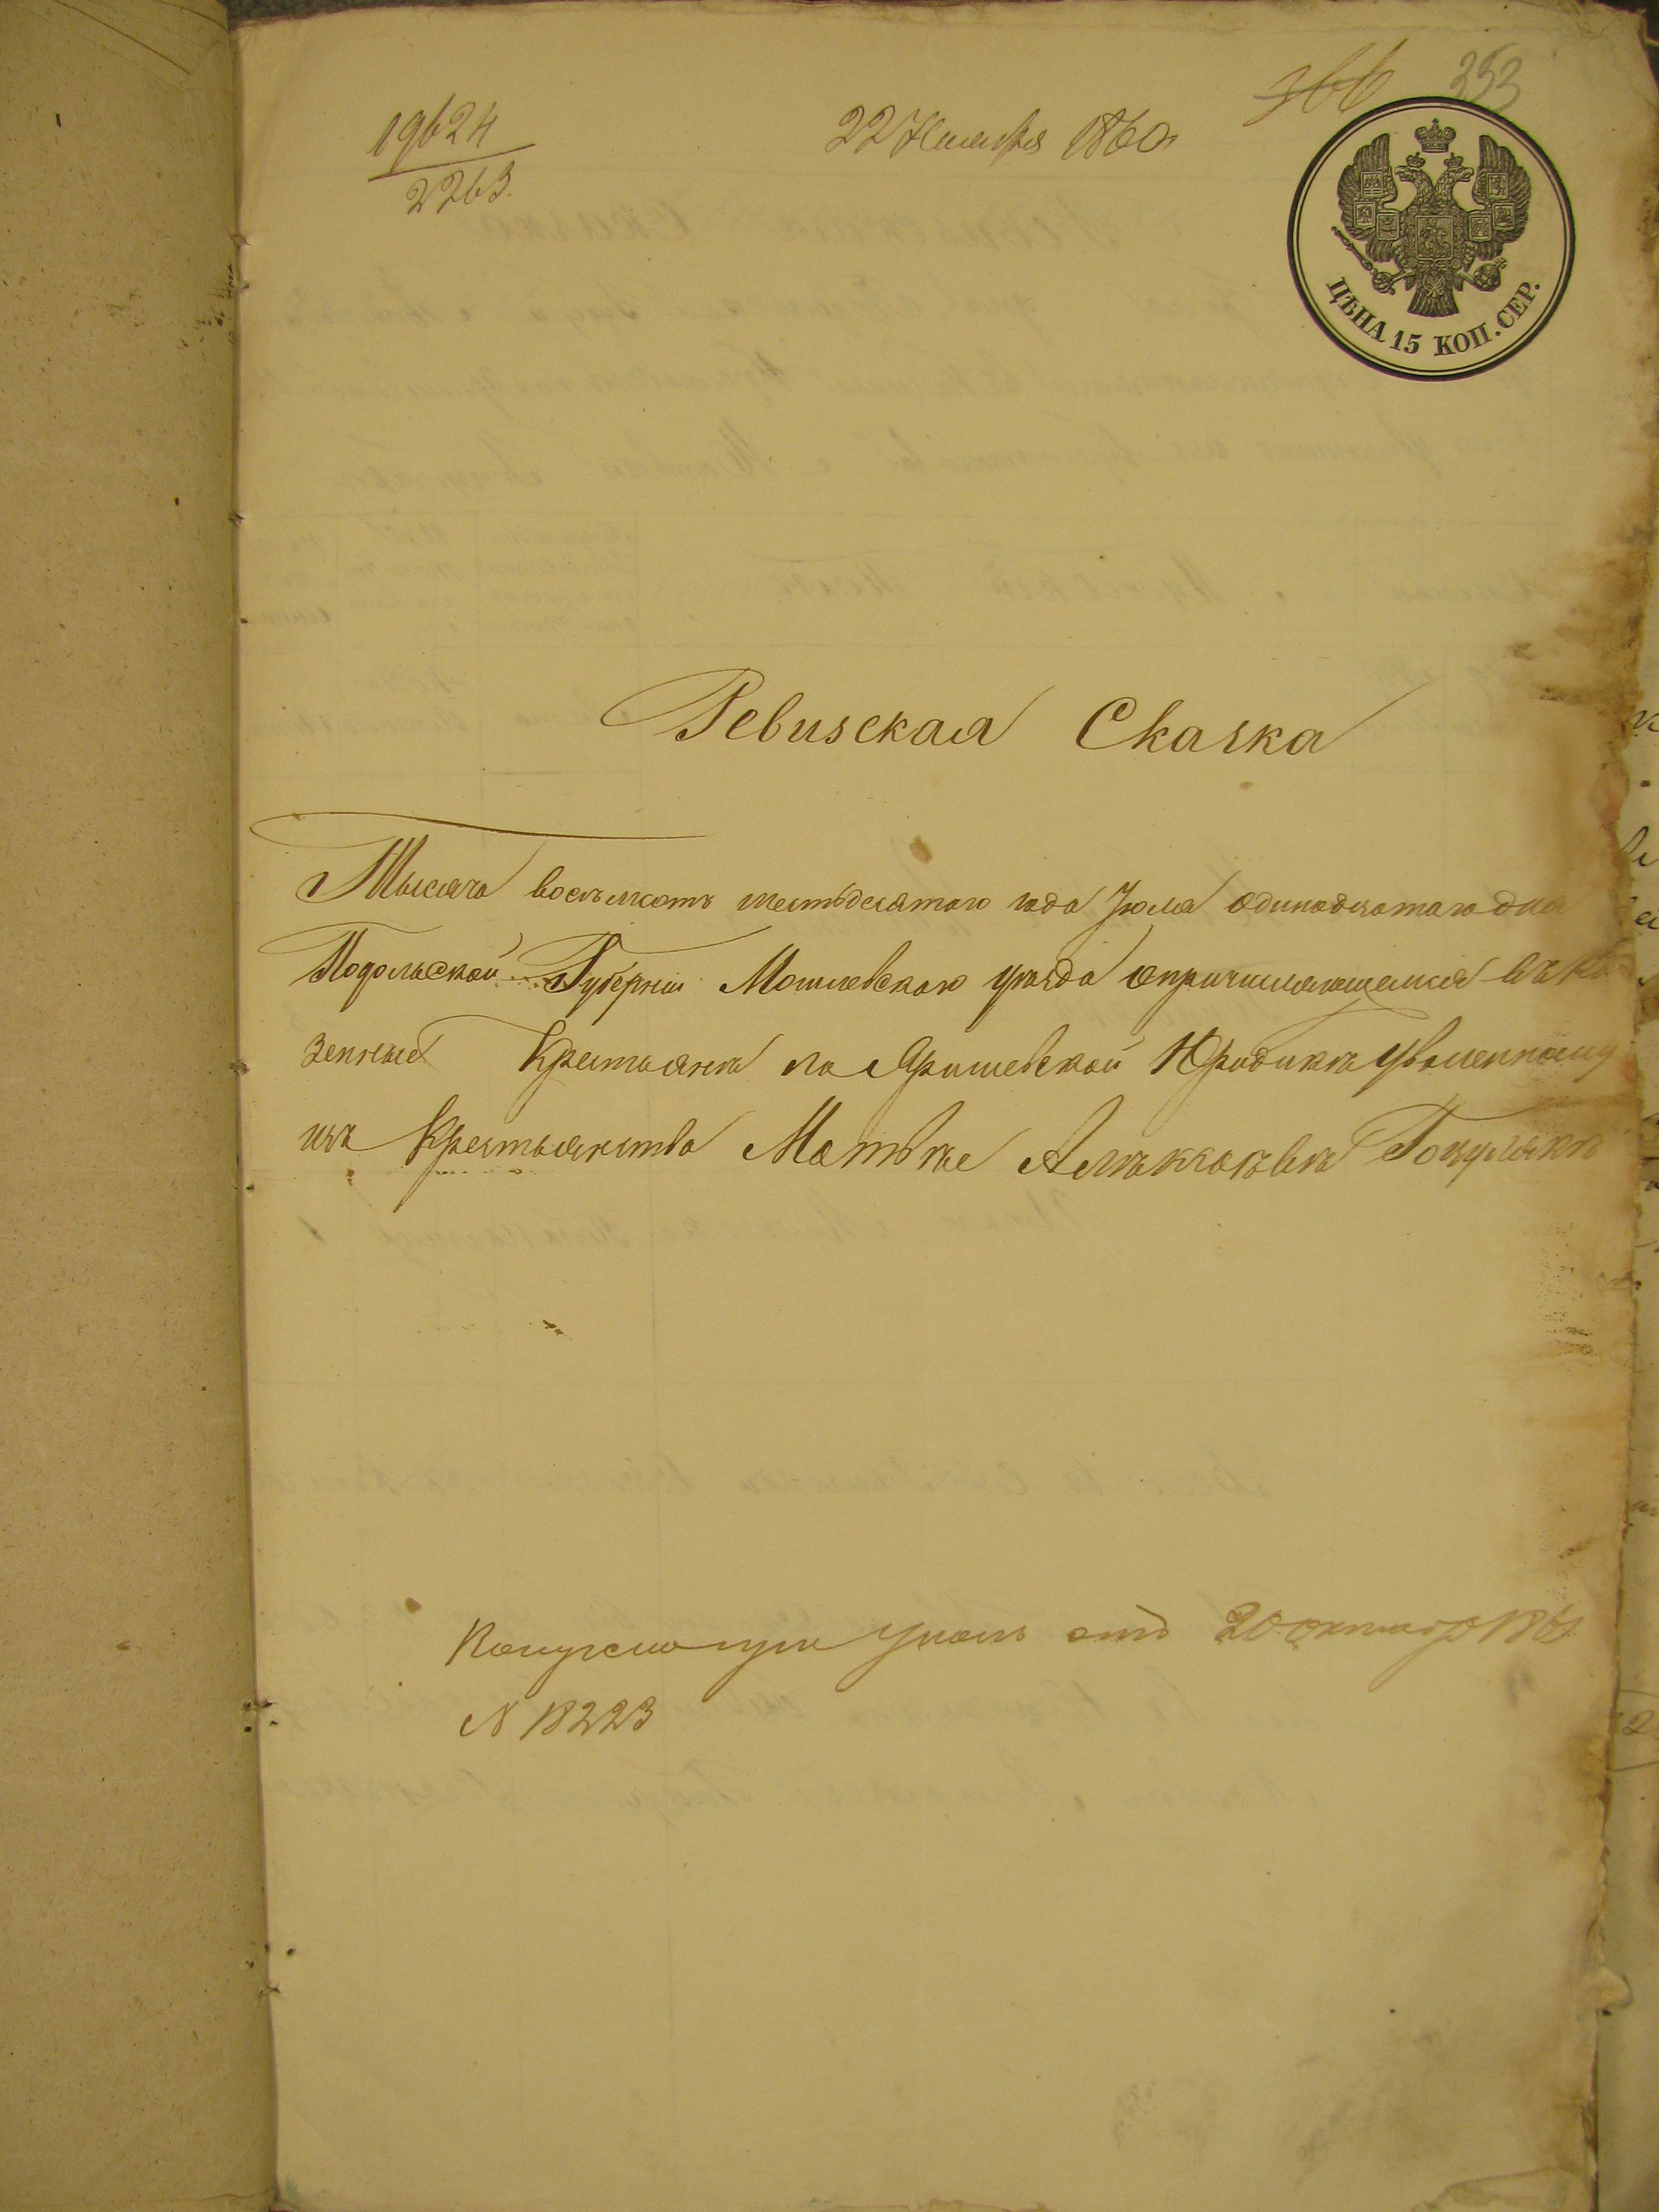 366 353
19624
2263.
22 Ноября 1860
ЦѢНА 15 КОП. СЕР.
Ревизская Сказка
Тысяча восемьсотъ шестьдесятаго года Іюля одинадцатаго дня
Подольской Губерніи Могилевскаго уѣзда о причисляющемся въ ка
зенные Крестьяне по Яришевской Юридикѣ уволенному
изъ Крестьянства Матвѣе
указ отъ 20 октября
N 18223